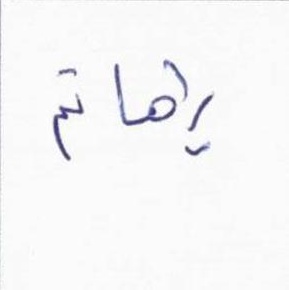 يراهاتم